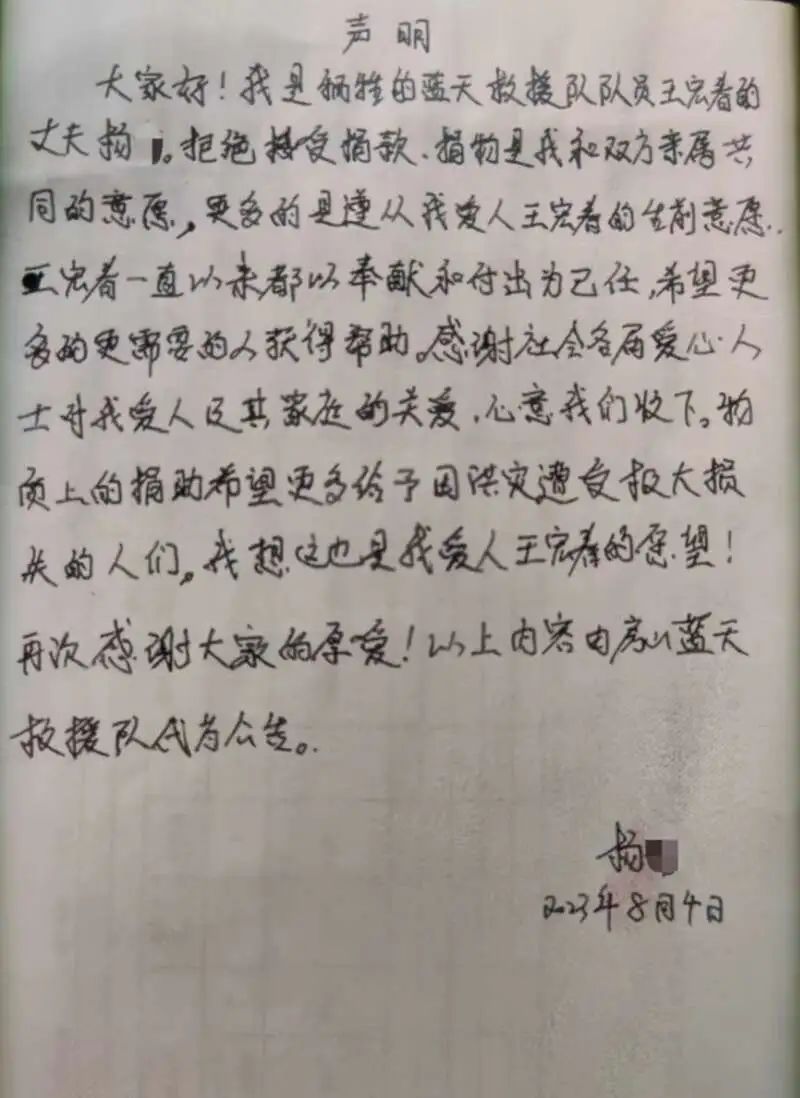 声明
大家好！我是牺牲的蓝天救援队队员王宏春的
丈夫杨。拒绝接受捐款、捐物是我和双方亲属共
同的意愿，更多的是遵从我爱人王宏春的生前意愿.
王宏春一直以来都以奉献和付出为己任，希望更
多的更需要的人获得帮助。感谢社会各届爱心人
士对我爱人及其家庭的关爱、心意我们收下。物
质上的捐助希望更多给予因洪灾遭受较大损
失的人们。我想这也是我爱人王宏春的愿望！
再次感谢大家的厚爱！以上内容由房山蓝天
救援队代为公告。
杨
2023年8月4日